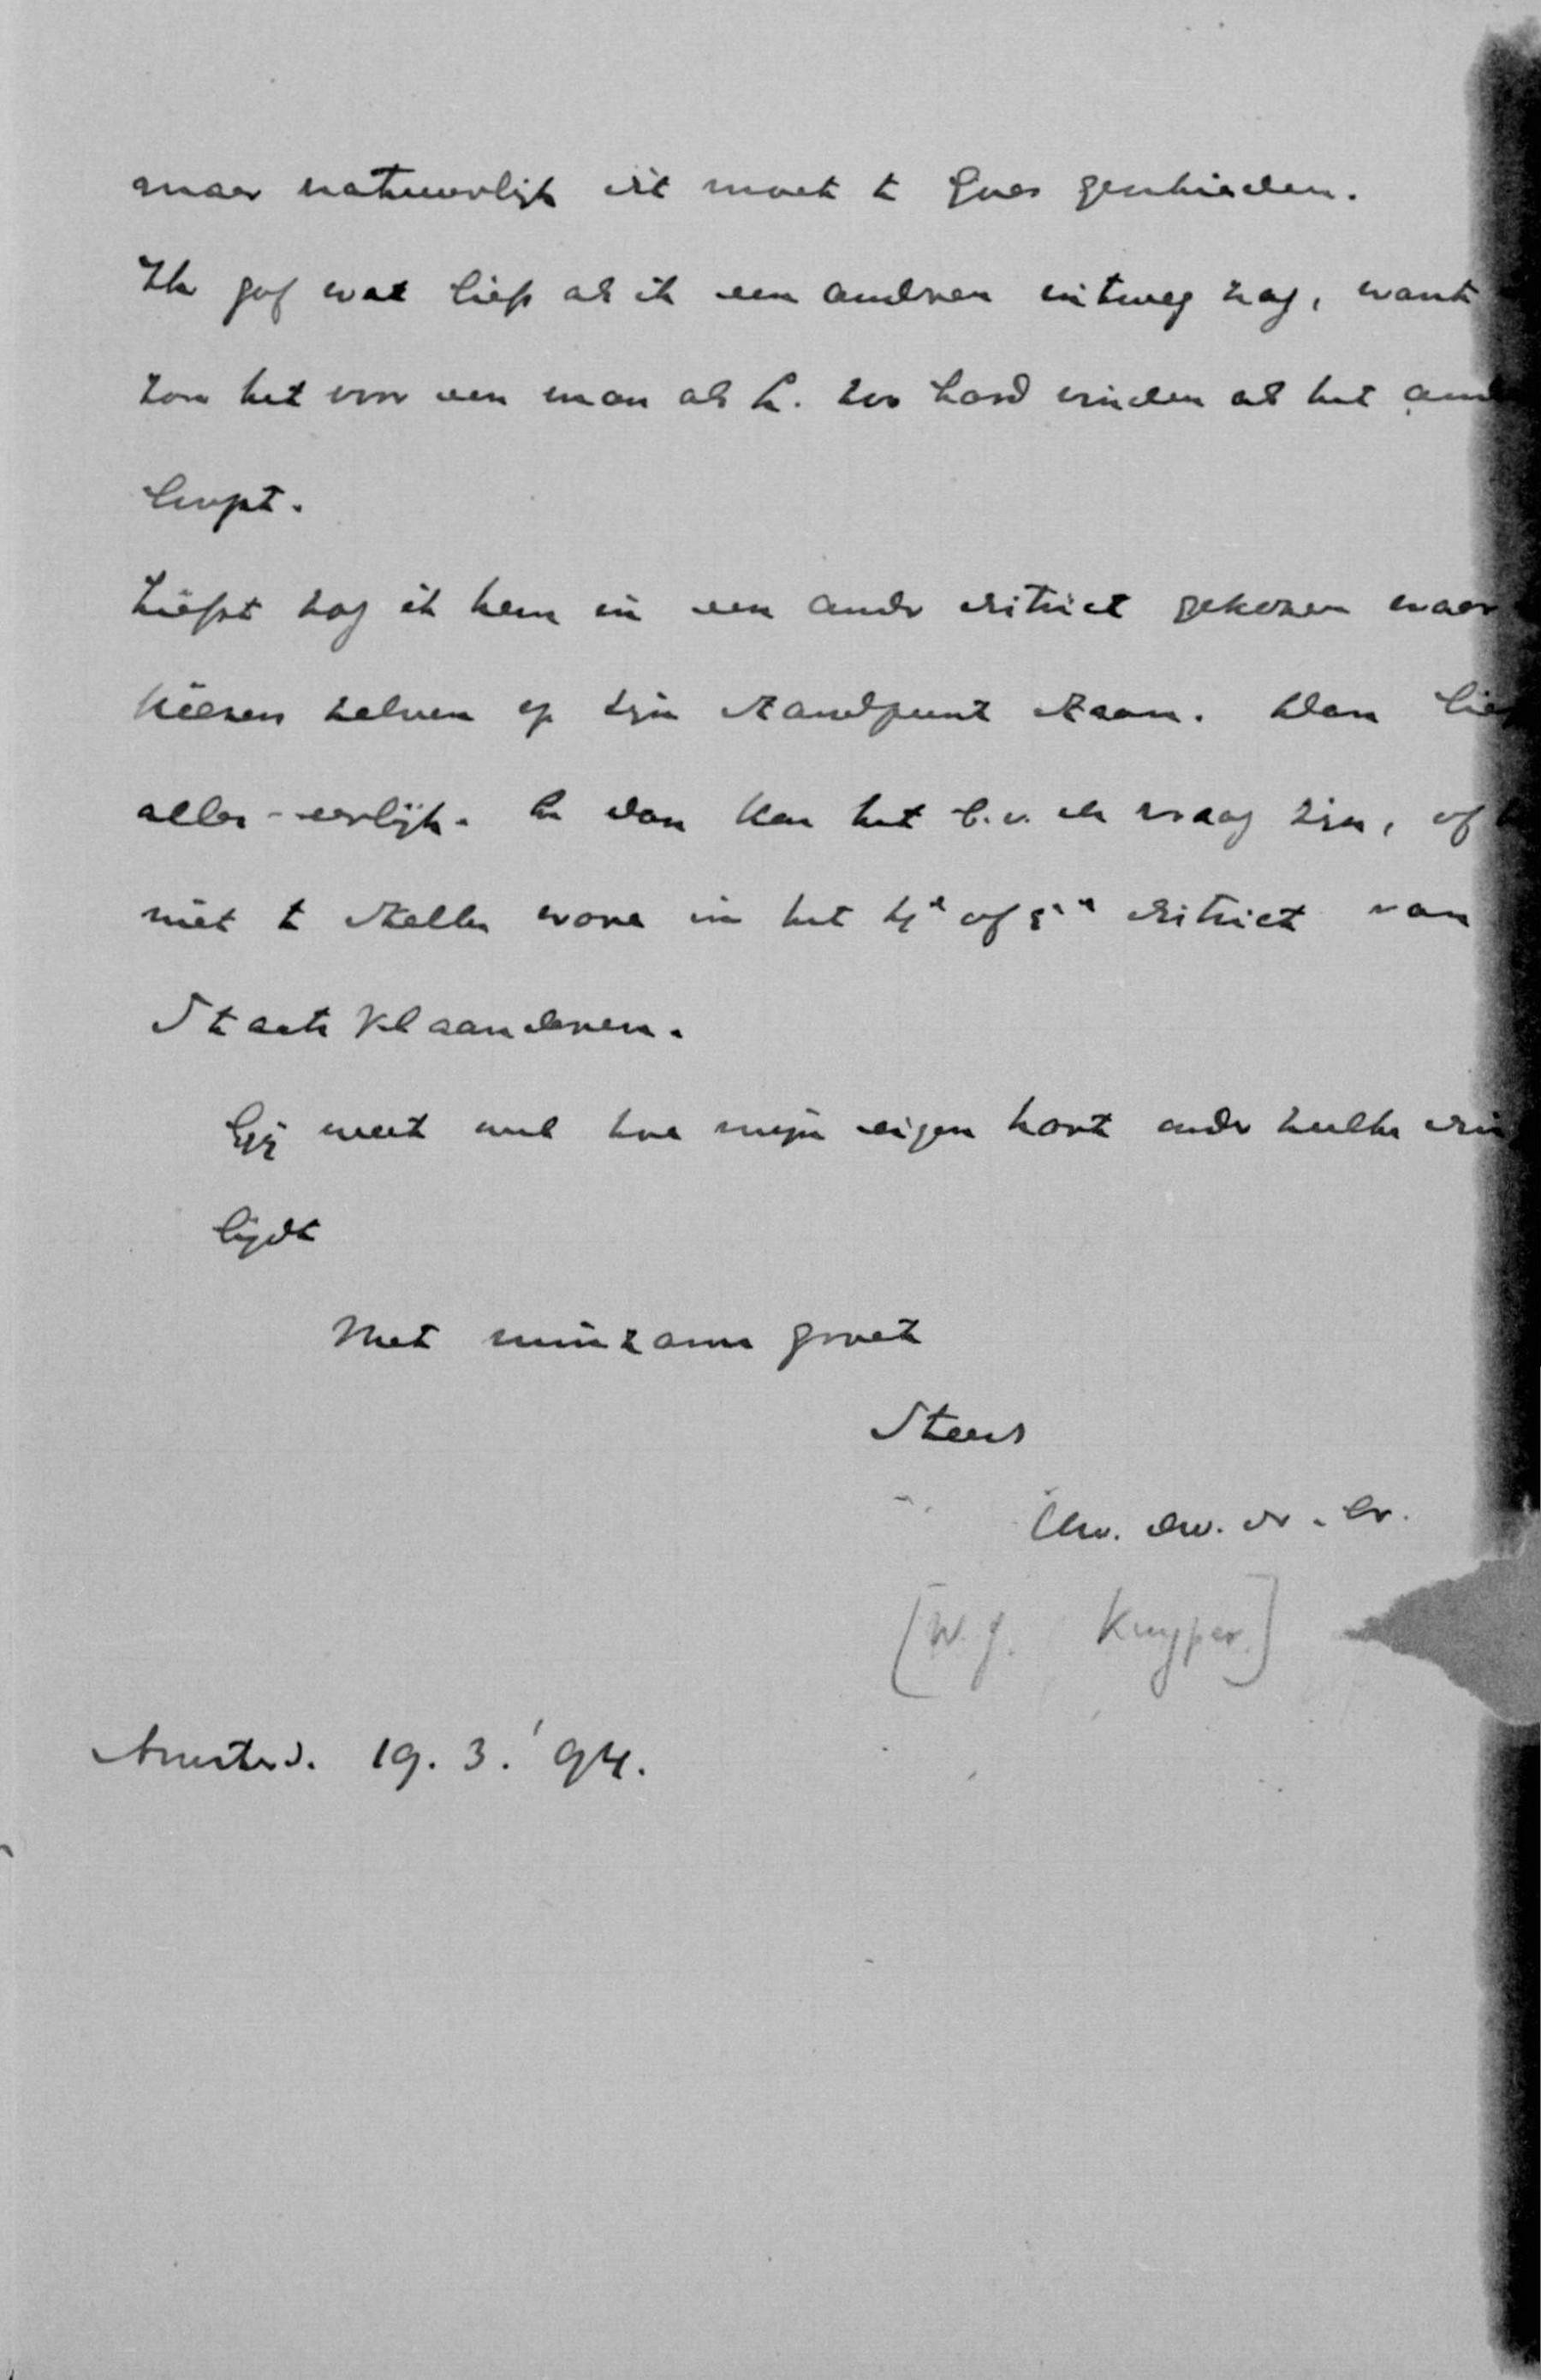 maar natuurlijk dit moet te Goes geschieden.
Ik gaf wat liefs als ik een andren uitweg zag, want
zou het voor een man als L. zoo hard vinden als het
loopt.
Liefst zag ik hem in een ander district gekozen waar
kiezers zelven op zijn standpunt staan. Dan
alles eerlijk. En dan kan het b.v. de vraag zijn, of
niet te stellen ware in het 4e of 5e district van
Staats Vlaanderen.
Gij weet wel hoe mijn eigen hart onder zulke
lijdt
Met minzame groet
Steeds
Uw. dw. dr. br.
[W.g. Kuyper.]
Amsterd. 19. 3. '94.